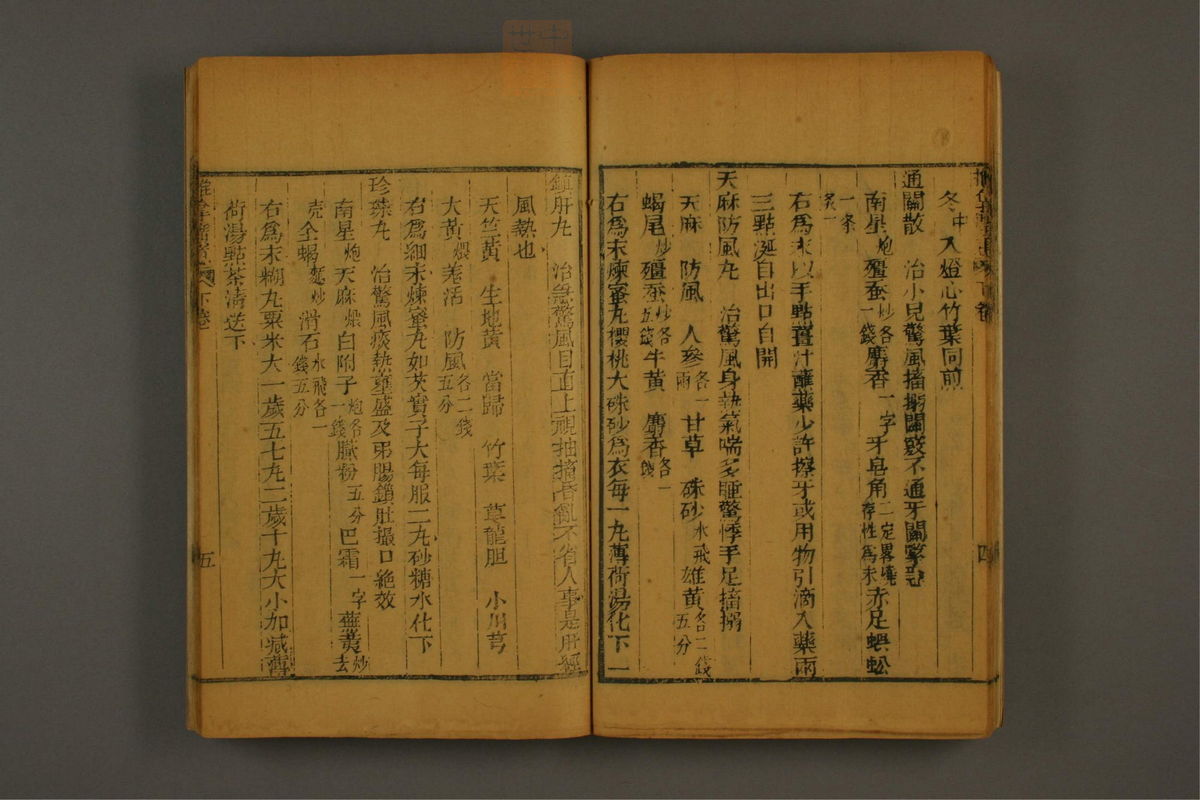 冬中入燈心竹葉同煎
通關散 治小兒驚風搐搦關竅不通牙關緊
南星炮殭蚕炒各一錢麝香一字牙皂角二定畧燒存性為末赤足蜈蚣
一条炙一
右為末以手點薑汁蘸藥少許擦牙或用物引滴入藥兩
三點涎自出口自開
天麻防風丸 治驚風身熱氣喘多睡驚悸手足搐搦
天麻 防風 人參各一兩甘草 硃砂水飛雄黃各二錢五分
蝎尾炒殭蚕炒各五錢牛黃 麝香各一錢
右為末煉蜜丸櫻桃大硃砂為衣每一丸薄荷湯化下一
四
鎮肝丸 治急驚風目直上視抽搐昏亂不省人事是肝經
風熱也
天竺黃 生地黃 當歸 竹葉 草龍胆 小川芎
大黃煨羌活 防風各二錢五分
右為細末煉蜜丸如芡實子大每服二丸砂糖水化下
珍珠丸 治驚風痰熱壅盛及弔腸鎖肚撮口絕效
南星炮天麻煨白附子炮各一錢膩粉五分巴霜一字蕪荑炒去
殼全蝎麵炒滑石水飛各一錢五分
右為末糊丸粟米大一歲五七丸二歲十丸大小加減薄
荷湯點茶清送下
下卷
五